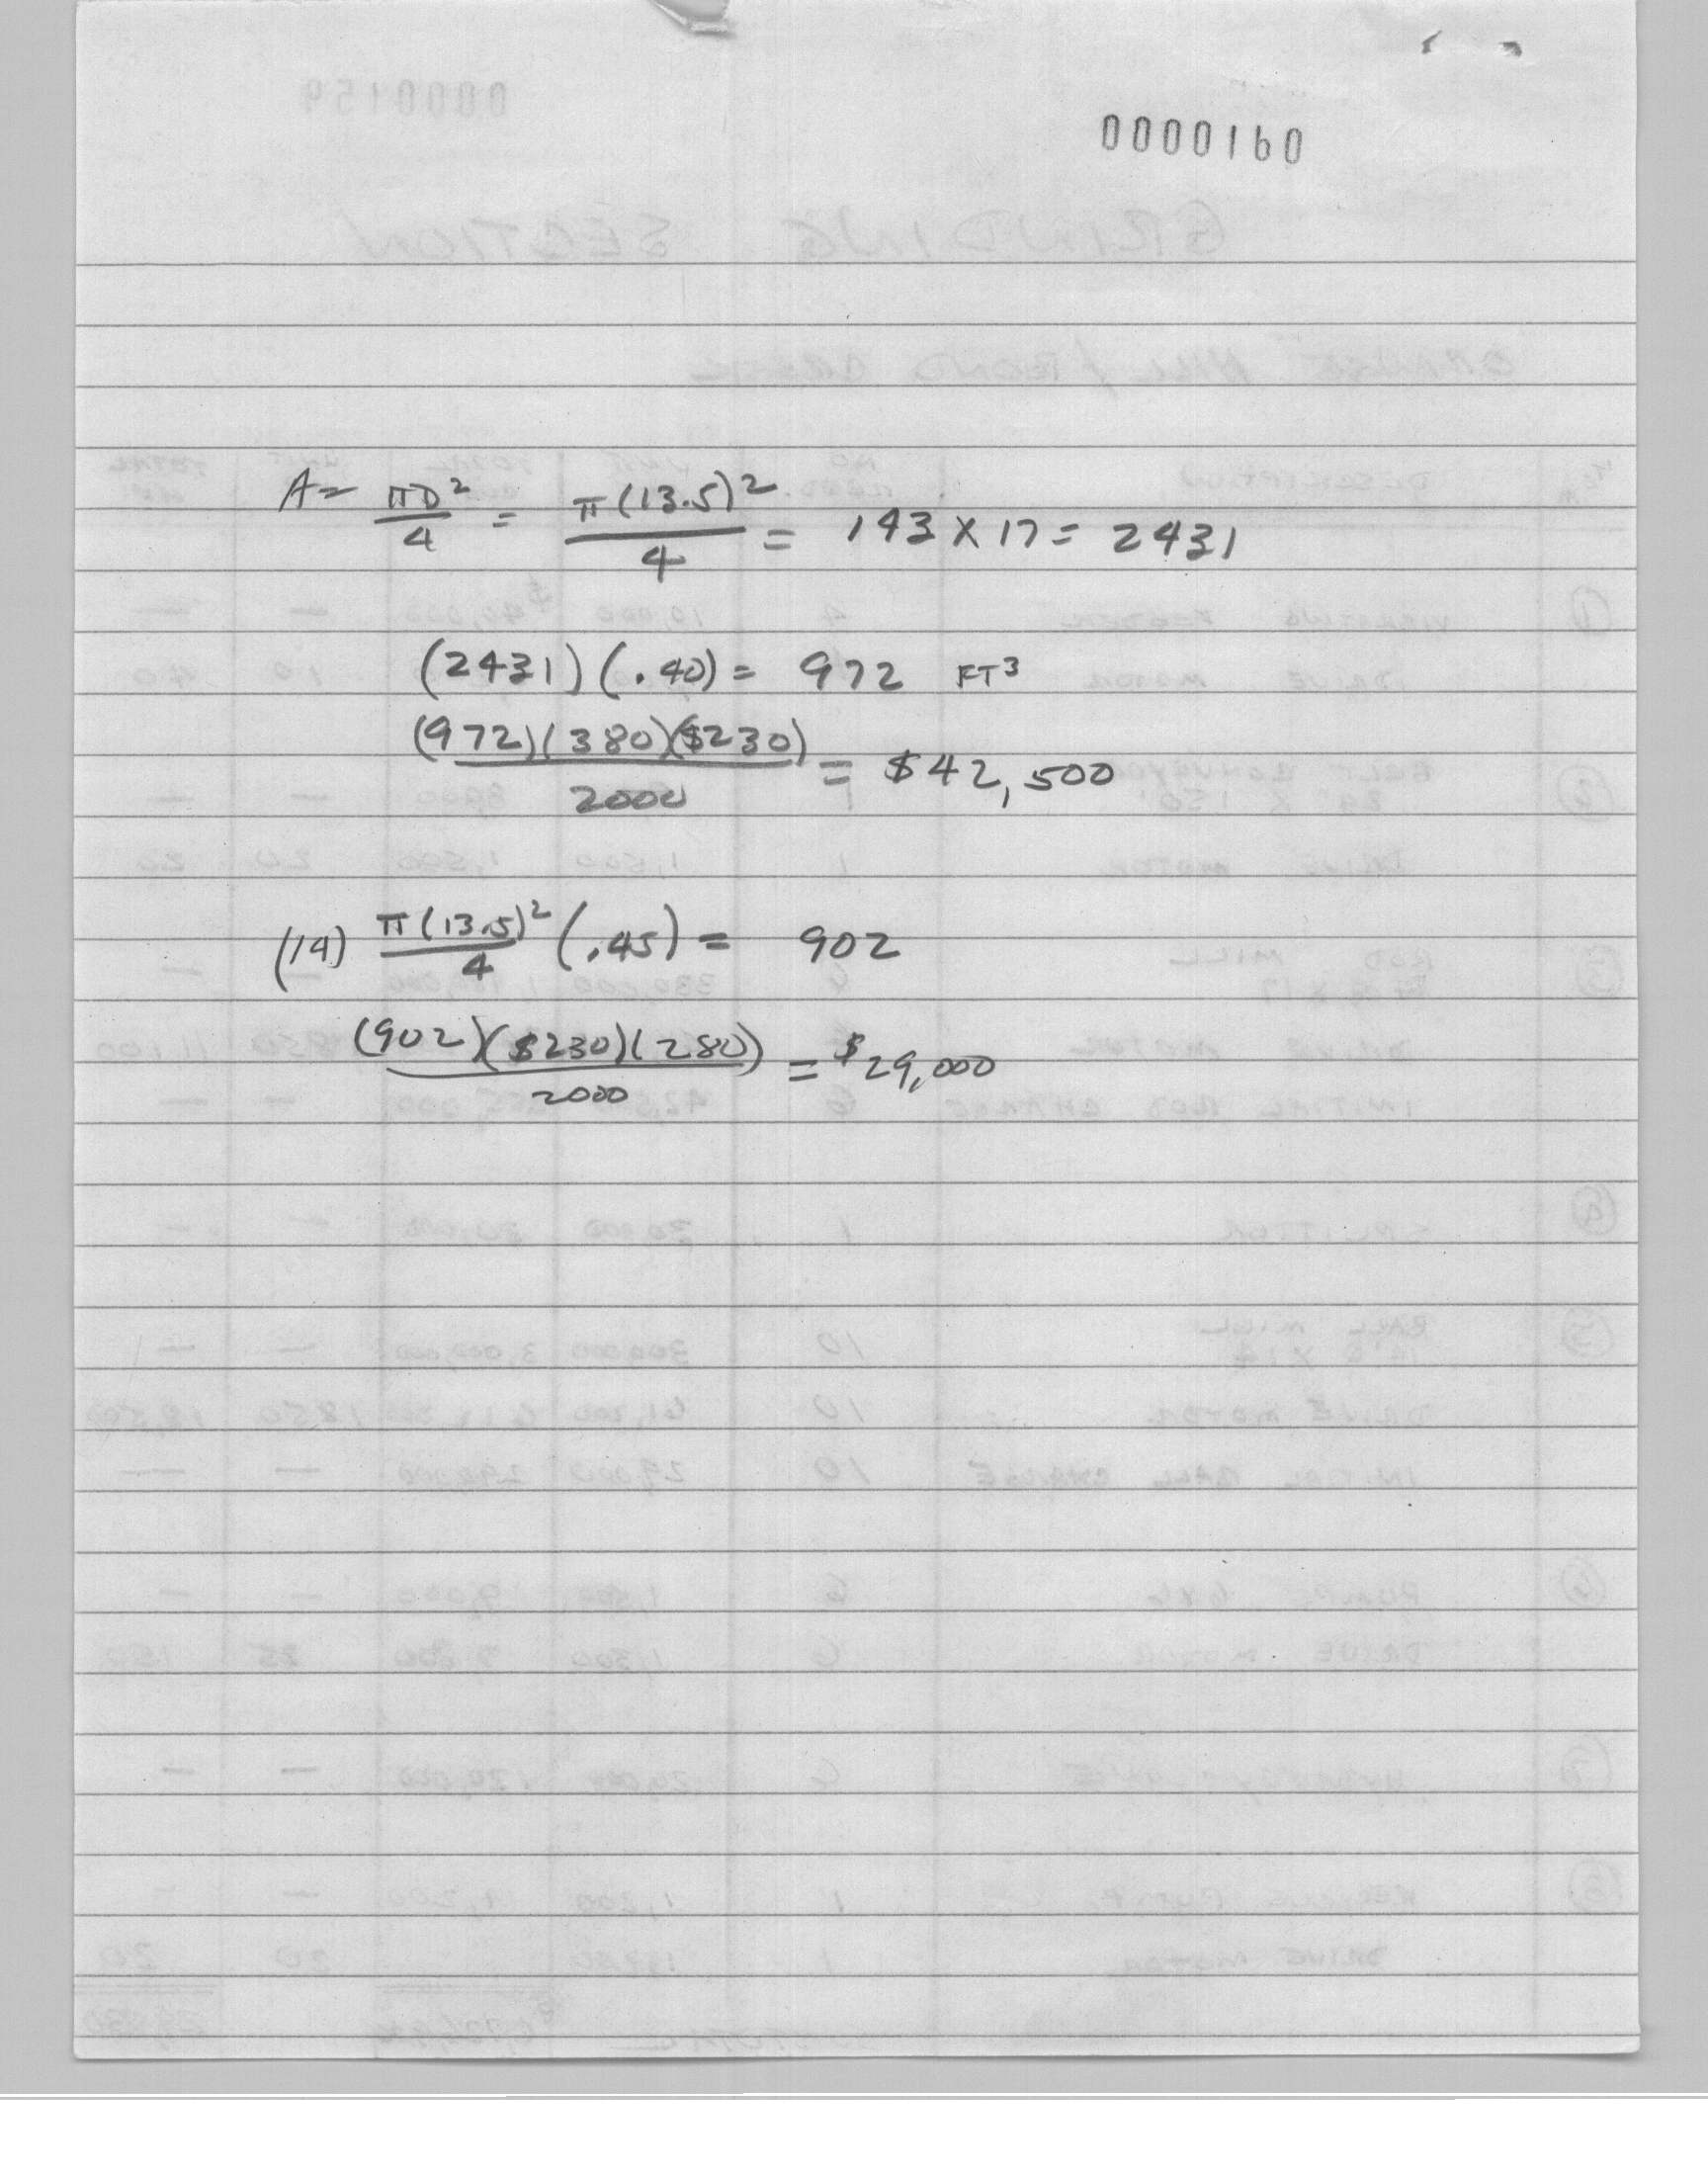 0000160
A = πD²/4 = π(13.5)²/4 = 143 x 17 = 2431
(2431)(.40) = 972 FT³
(972)(380)($230)/2000 = $42,500
(14) π(13.5)²/4 (.45) = 902
(902)($230)(280)/2000 = $29,000